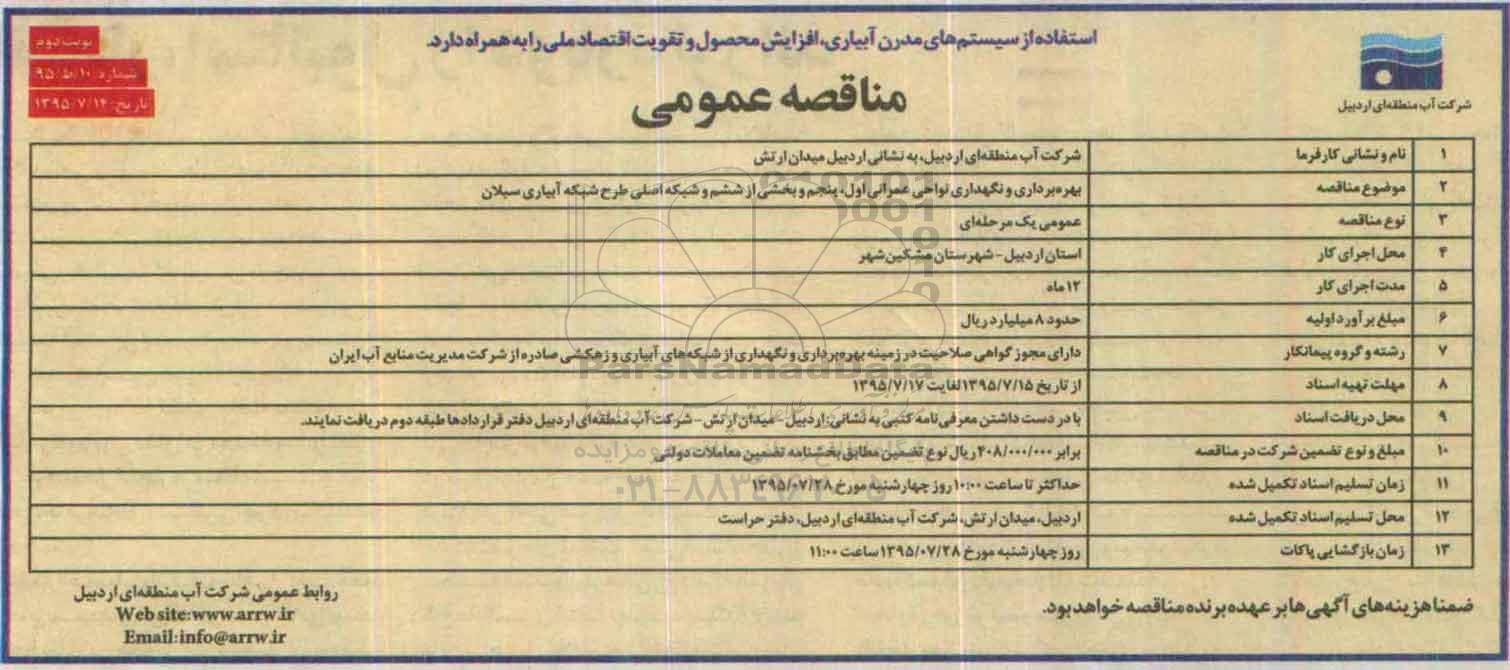 استفاده از سیستم‌های مدرن آبیاری، افزایش محصول و تقویت اقتصاد ملی را به همراه دارد.
شرکت آب منطقه‌ای اردبیل
نوبت دوم
شماره: ۱۰/ط/۹۵
تاریخ: ۱۳۹۵/۷/۱۴
مناقصه عمومی
۱ نام و نشانی کارفرما شرکت آب منطقه‌ای اردبیل، به نشانی اردبیل میدان ارتش
۲ موضوع مناقصه بهره‌برداری و نگهداری نواحی عمرانی اول، پنجم و بخشی از ششم و شبکه اصلی طرح شبکه آبیاری سبلان
۳ نوع مناقصه عمومی یک مرحله‌ای
۴ محل اجرای کار استان اردبیل - شهرستان مشکین‌شهر
۵ مدت اجرای کار ۱۲ ماه
۶ مبلغ برآورد اولیه حدود ۸ میلیارد ریال
۷ رشته و گروه پیمانکار دارای مجوز گواهی صلاحیت در زمینه بهره‌برداری و نگهداری از شبکه‌های آبیاری و زهکشی صادره از شرکت مدیریت منابع آب ایران
۸ مهلت تهیه اسناد از تاریخ ۱۳۹۵/۷/۱۵ لغایت ۱۳۹۵/۷/۱۷
۹ محل دریافت اسناد با در دست داشتن معرفی‌نامه کتبی به نشانی: اردبیل - میدان ارتش - شرکت آب منطقه‌ای اردبیل دفتر قراردادها طبقه دوم دریافت نمایند.
۱۰ مبلغ و نوع تضمین شرکت در مناقصه برابر ۴۰۸/۰۰۰/۰۰۰ ریال نوع تضمین مطابق بخشنامه تضمین معاملات دولتی
۱۱ زمان تسلیم اسناد تکمیل شده حداکثر تا ساعت ۱۰:۰۰ روز چهارشنبه مورخ ۱۳۹۵/۰۷/۲۸
۱۲ محل تسلیم اسناد تکمیل شده اردبیل، میدان ارتش، شرکت آب منطقه‌ای اردبیل، دفتر حراست
۱۳ زمان بازگشایی پاکات روز چهارشنبه مورخ ۱۳۹۵/۰۷/۲۸ ساعت ۱۱:۰۰
ParsNamadData
ضمنا هزینه‌های آگهی‌ها بر عهده برنده مناقصه خواهد بود.
روابط عمومی شرکت آب منطقه‌ای اردبیل
Web site:www.arrw.ir
Email:info@arrw.ir